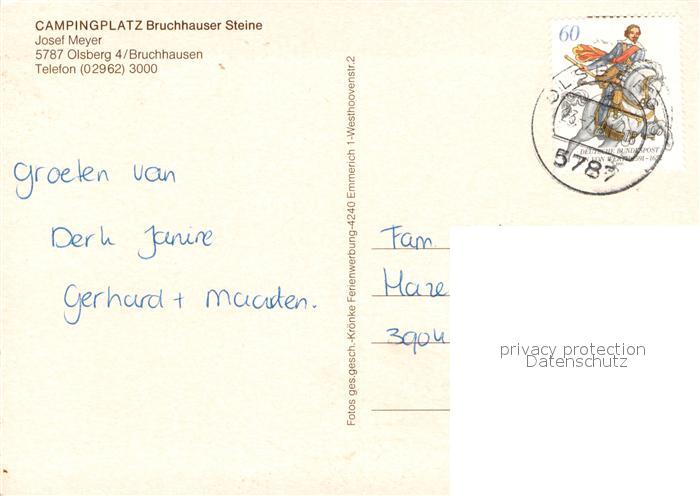 CAMPINGPLATZ Bruchhauser Steine
Josef Meyer
5787 Olsberg 4/Bruchhausen
Telefon (02962) 3000
60
OLSBERG
5787
DEUTSCHE BUNDESPOST
groeten van
Derk Janine
Gerhard + Maarten.
Fotos ges.gesch.-Krönke Ferienwerbung-4240 Emmerich 1-Westhoovenstr.2
Fam.
Haze
3904
privacy protection
Datenschutz